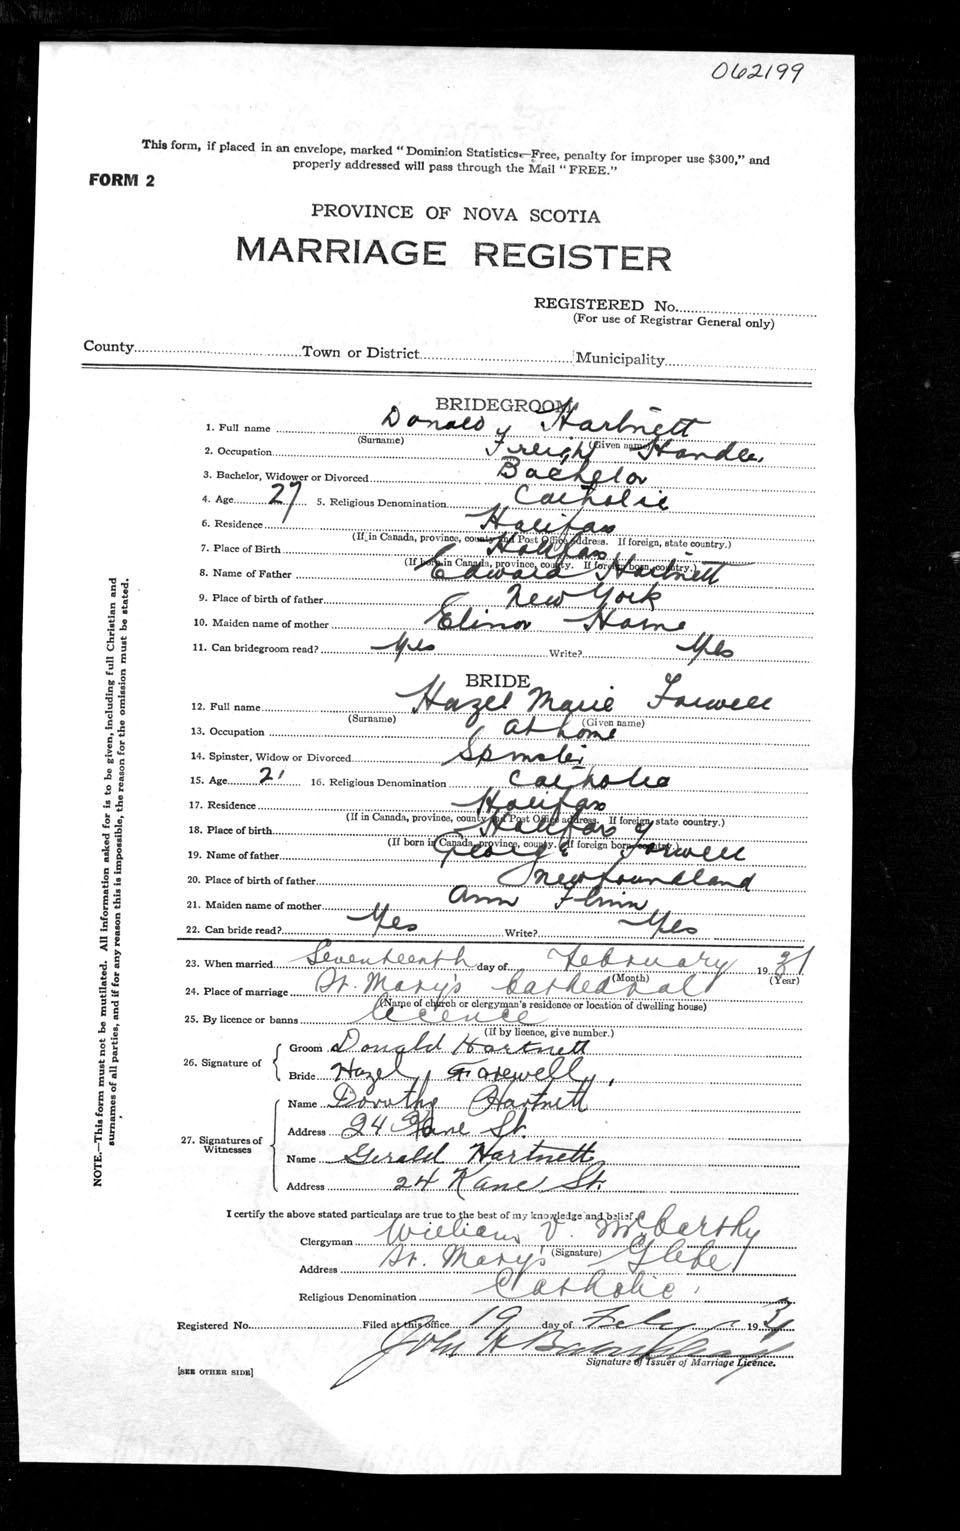 062199
This form, if placed in an envelope, marked "Dominion Statistics—Free, penalty for improper use $300," and
properly addressed will pass through the Mail "FREE."
FORM 2
PROVINCE OF NOVA SCOTIA
MARRIAGE REGISTER
REGISTERED No.
(For use of Registrar General only)
County Town or District Municipality
BRIDEGROOM
1. Full name Donald Hartnett
(Surname) (Given name)
2. Occupation Freight Handler
3. Bachelor, Widower or Divorced Bachelor
4. Age 27 5. Religious Denomination Catholic
6. Residence Halifax
(If in Canada, province, county and Post Office address. If foreign, state country.)
7. Place of Birth Halifax
(If born in Canada, province, county. If foreign born, country.)
8. Name of Father Edward Hartnett
9. Place of birth of father New York
10. Maiden name of mother Elinor
11. Can bridegroom read? Yes Write? Yes
BRIDE
12. Full name Hazel Marie Farwell
(Surname) (Given name)
13. Occupation at home
14. Spinster, Widow or Divorced Spinster
15. Age 21 16. Religious Denomination Catholic
17. Residence Halifax
(If in Canada, province, county and Post Office address. If foreign, state country.)
18. Place of birth Halifax
(If born in Canada, province, county. If foreign born, country.)
19. Name of father George Farwell
20. Place of birth of father Newfoundland
21. Maiden name of mother Ann Flinn
22. Can bride read? Yes Write? Yes
23. When married Seventeenth day of February 1931
(Month) (Year)
24. Place of marriage St. Mary's Cathedral
(Name of church or clergyman's residence or location of dwelling house)
25. By licence or banns licence
(If by licence, give number.)
26. Signature of
Groom Donald Hartnett
Bride Hazel Farewell
27. Signatures of Witnesses
Name Dorothy Hartnett
Address 24 Kane St.
Name Gerald Hartnett
Address 24 Kane St.
I certify the above stated particulars are true to the best of my knowledge and belief.
Clergyman William V. McCarthy
(Signature)
Address St. Mary's Glebe
Religious Denomination Catholic
Registered No. Filed at this office 19 day of Feby 1931
John H
Signature of Issuer of Marriage Licence.
[SEE OTHER SIDE]
NOTE.—This form must not be mutilated. All information asked for is to be given, including full Christian and
surnames of all parties, and if for any reason this is impossible, the reason for the omission must be stated.